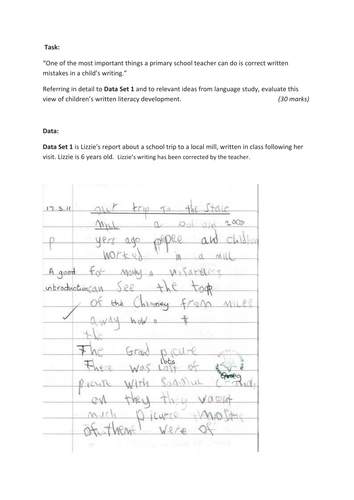 Task:
“One of the most important things a primary school teacher can do is correct written
mistakes in a child’s writing.”
Referring in detail to Data Set 1 and to relevant ideas from language study, evaluate this
view of children’s written literacy development. (30 marks)
Data:
Data Set 1 is Lizzie’s report about a school trip to a local mill, written in class following her
visit. Lizzie is 6 years old. Lizzie’s writing has been corrected by the teacher.
17.3.11 our trip to the
Mill a 2000
p yers ago and children
worked in a mill
A good For
introduction can See the top
of the Chimney from miles
away now
the
The Grand picure
There was Lost of
Lots
picure with
on they they
much picure
of them were of